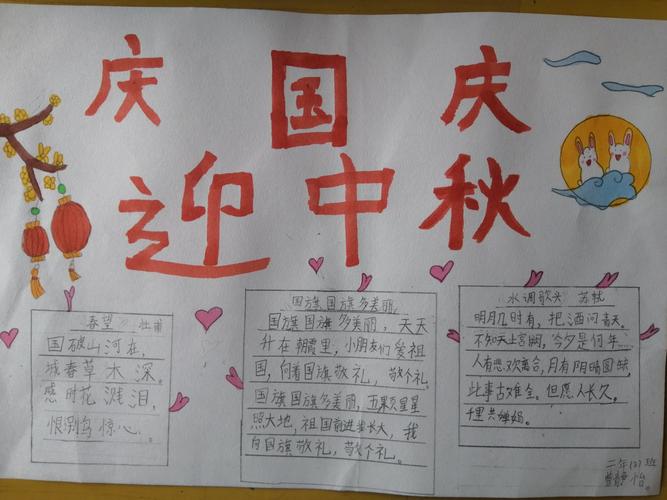 庆国庆
迎中秋
春望 杜甫
国破山河在，
城春草木深。
感时花溅泪，
恨别鸟惊心。
国旗国旗多美丽
国旗国旗多美丽，天天
升在朝霞里，小朋友们爱祖
国，向着国旗敬礼，敬个礼。
国旗国旗多美丽，五颗星星
照大地，祖国前进我长大，我
向国旗敬礼，敬个礼。
水调歌头 苏轼
明月几时有，把酒问青天。
不知天上宫阙，今夕是何年
人有悲欢离合，月有阴晴圆缺
此事古难全。但愿人长久。
千里共婵娟。
二年(3)班
静怡